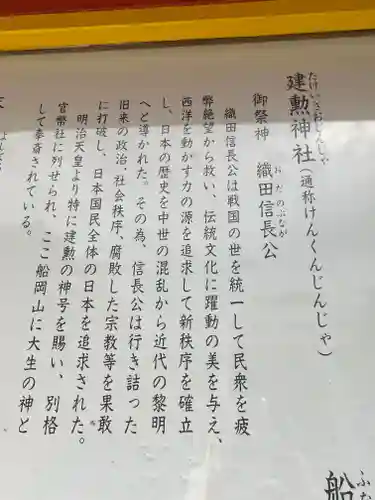 たけいさおじんじゃ
建勲神社(通称けんくんじんじゃ)
御祭神 織田信長公
おだのぶなが
織田信長公は戦国の世を統一して民衆を疲
弊絶望から救い、伝統文化に躍動の美を与え、
西洋を動かす力の源を追求して新秩序を確立
し、日本の歴史を中世の混乱から近代の黎明
へと導かれた。その為、信長公は行き詰った
旧来の政治、社会秩序、腐敗した宗教等を果敢
に打破し、日本国民全体の日本を追求された。
明治天皇より特に建勲の神号を賜い、別格
官幣社に列せられ、ここ船岡山に大生の神と
して奉斎されている。
船
ふな